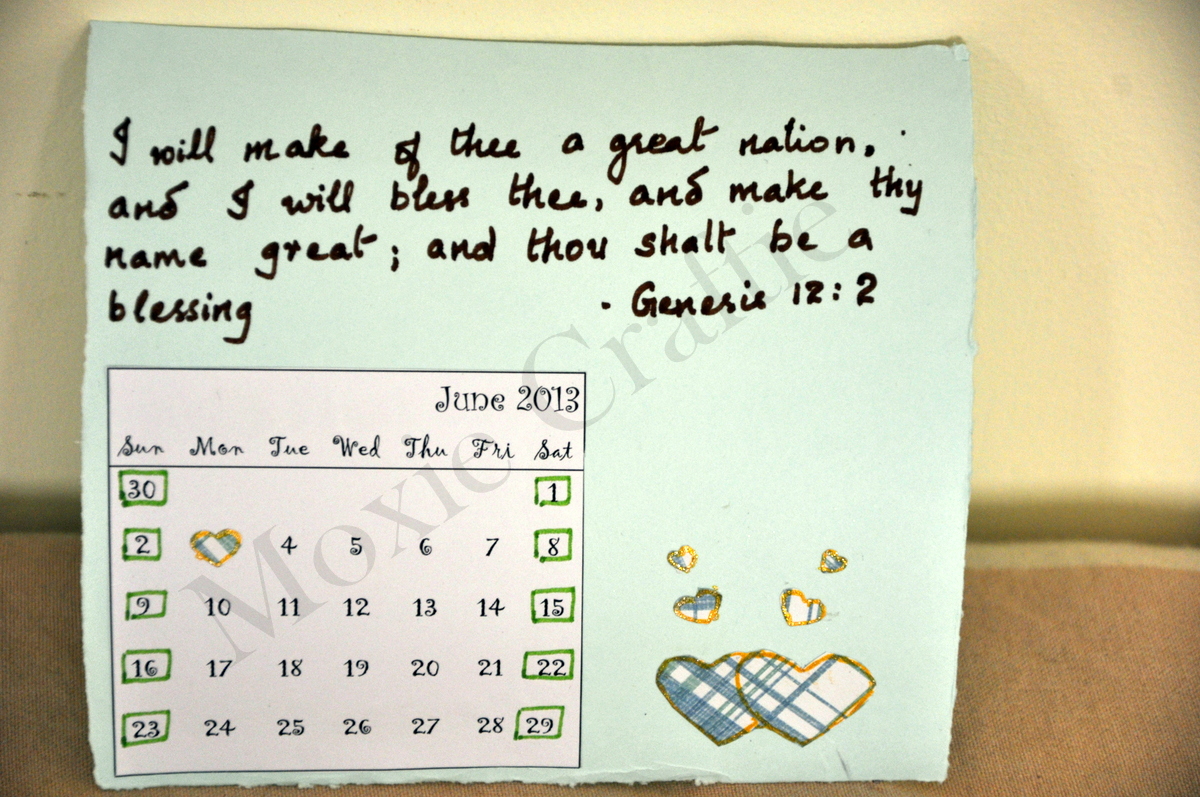 I will make of thee a great nation,
and I will bless thee, and make thy
name great; and thou shalt be a
blessing - Genesis 12:2
June 2013
Sun Mon Tue Wed Thu Fri Sat
30 1
2 4 5 6 7 8
9 10 11 12 13 14 15
16 17 18 19 20 21 22
23 24 25 26 27 28 29
Moxie Craftie